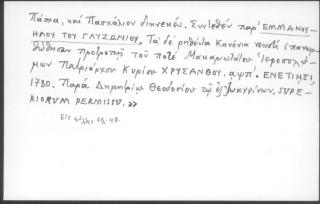 Πάσχα, καὶ Πασχάλιον διηνεκές. Συντεθὲν παρ' ΕΜΜΑΝΟΥ-
ΗΛΟΥ ΤΟΥ ΓΛΥΖΩΝΙΟΥ. Τὰ δὲ ῥηθέντα Κανόνια νεωστὶ ἐπηνωρ-
θώθησαν προτροπῇ τοῦ ποτὲ Μακαριωτάτου Ἱεροσολύ-
μων Πατριάρχου Κυρίου ΧΡΥΣΑΝΘΟΥ. αψπ'. ΕΝΕΤΙΗΣΙ,
1780. Παρὰ Δημητρίῳ Θεοδοσίου τῷ ἐξ Ἰωαννίνων. SUPE-
RIORUM PERMISSU. »
Εἰς 4ον, σελ. 42.